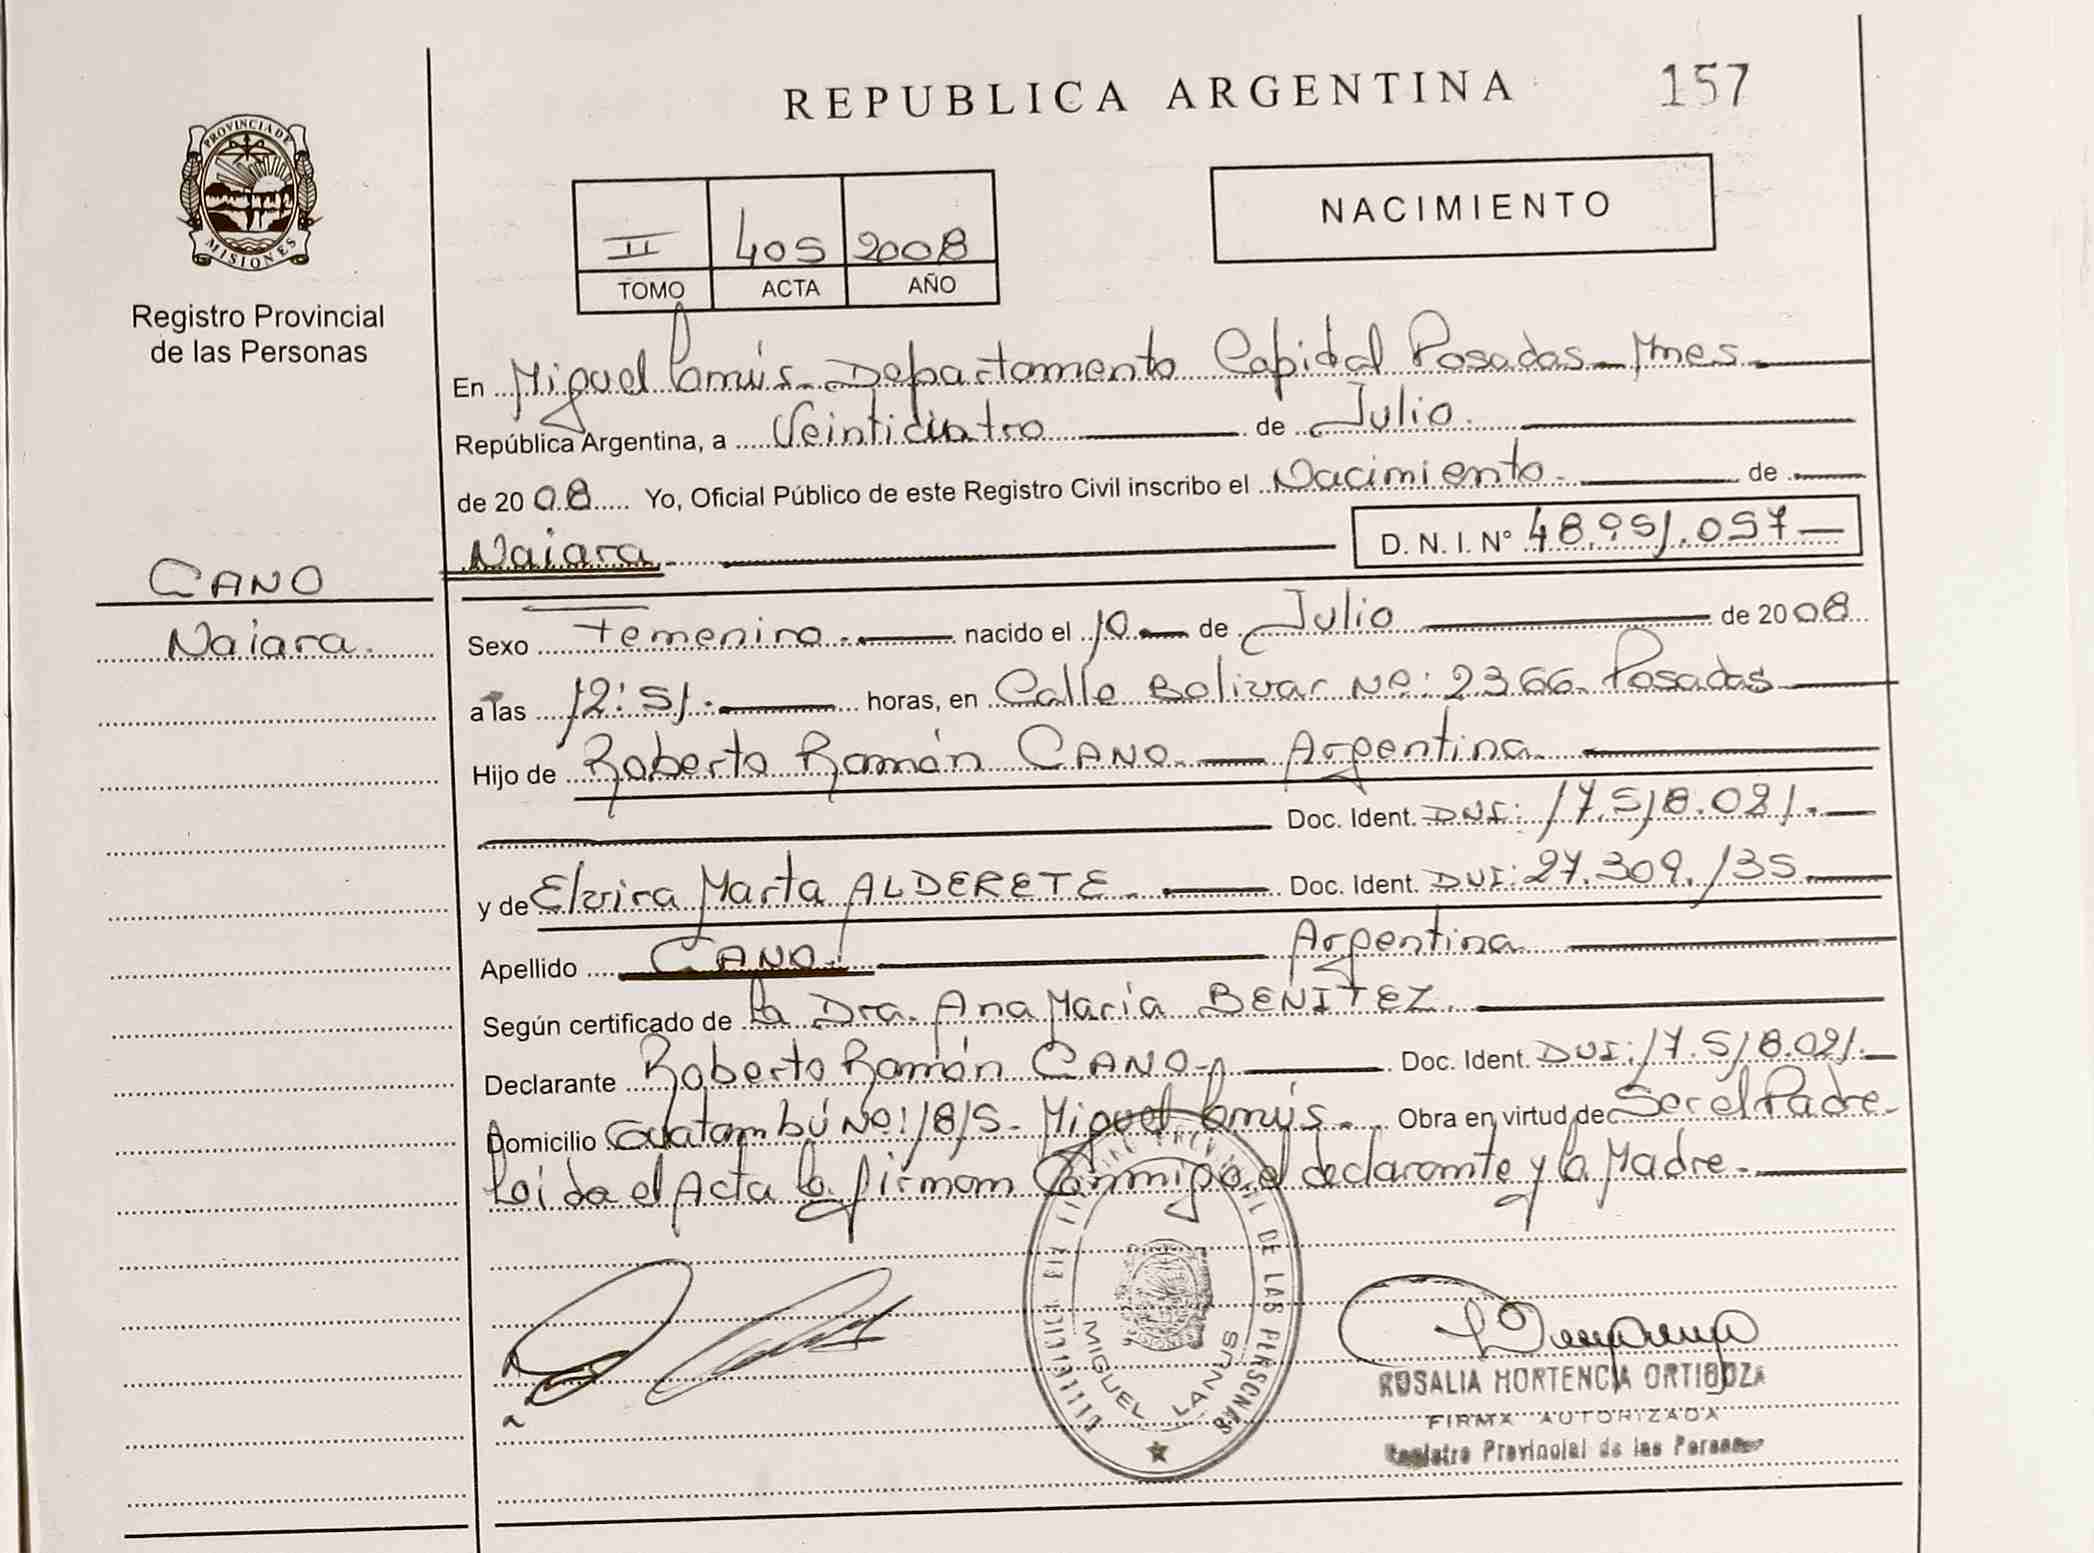 REPUBLICA ARGENTINA
157
PROVINCIA DE
MISIONES
Registro Provincial
de las Personas
II 405 2008
TOMO ACTA AÑO
NACIMIENTO
En Miguel Lanús - Departamento Capital Posadas - Mnes
República Argentina, a Veinticuatro de Julio
de 2008 Yo, Oficial Público de este Registro Civil inscribo el Nacimiento de
Naiara D. N. I. N° 48.951.057
CANO
Naiara.
Sexo Femenino nacido el 10 de Julio de 2008
a las 12:51. horas, en Calle Bolivar Nº: 2366 Posadas
Hijo de Roberto Ramón CANO Argentina
Doc. Ident. DNI: 17.518.021.
y de Elvira Marta ALDERETE Doc. Ident. DNI: 27.309.135
Apellido CANO. Argentina
Según certificado de la Dra. Ana María BENITEZ.
Declarante Roberto Ramón CANO Doc. Ident. DNI: 17.518.021.
Domicilio Guatambú Nº: 1815 - Miguel Lanús Obra en virtud de Ser el Padre
Leida el Acta la firman Conmigo el declarante y la Madre
DE LAS PERSONAS
MIGUEL LANUS
ROSALIA HORTENCIA ORTIGOZA
FIRMA AUTORIZADA
Registro Provincial de las Personas